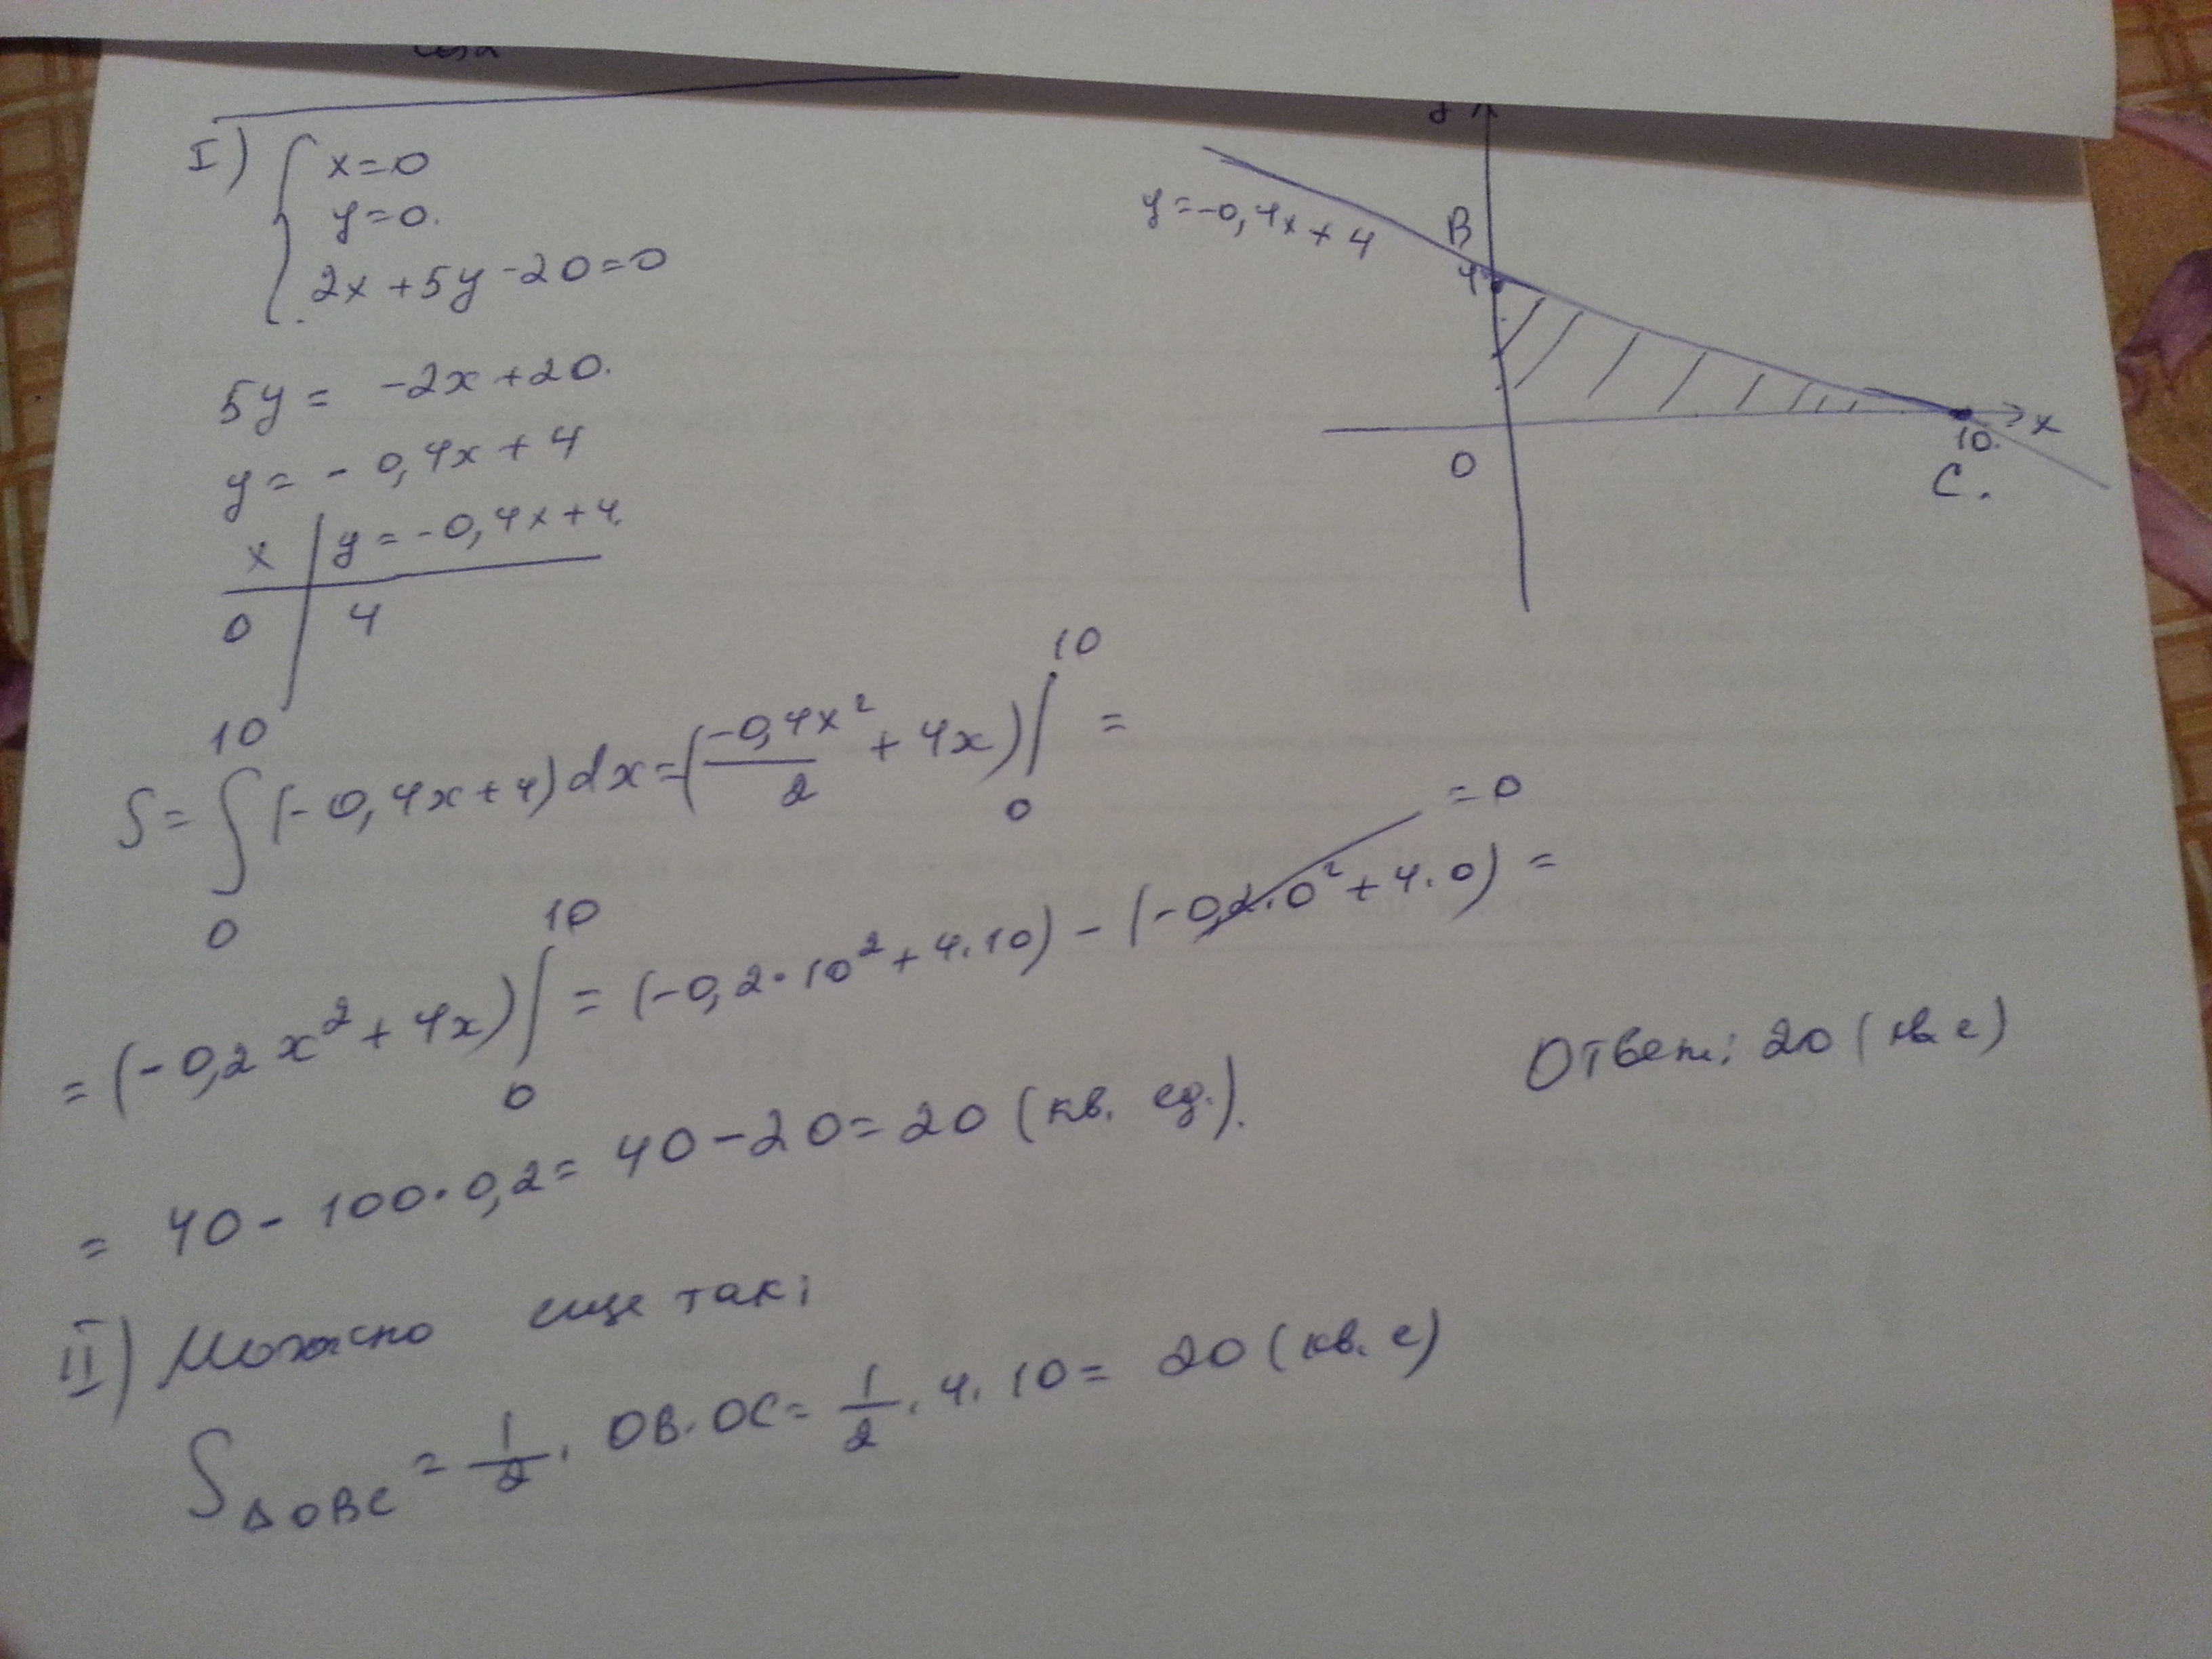 I) { x=0
y=0.
2x+5y-20=0
5y= -2x+20.
y= -0,4x+4
x | y=-0,4x+4.
0 | 4
y=-0,4x+4
B
4
0
10.
x
C.
S= ∫₀¹⁰ (-0,4x+4)dx=(-0,4x²/2 + 4x)|₀¹⁰ =
= (-0,2x²+4x)|₀¹⁰ = (-0,2·10²+4·10) - (-0,2·0²+4·0) =
=0
= 40-100·0,2= 40-20=20 (кв. ед.).
Ответ: 20 (кв е)
II) Можно еще так:
S△OBC = 1/2 · OB·OC= 1/2 · 4·10= 20 (кв. е)